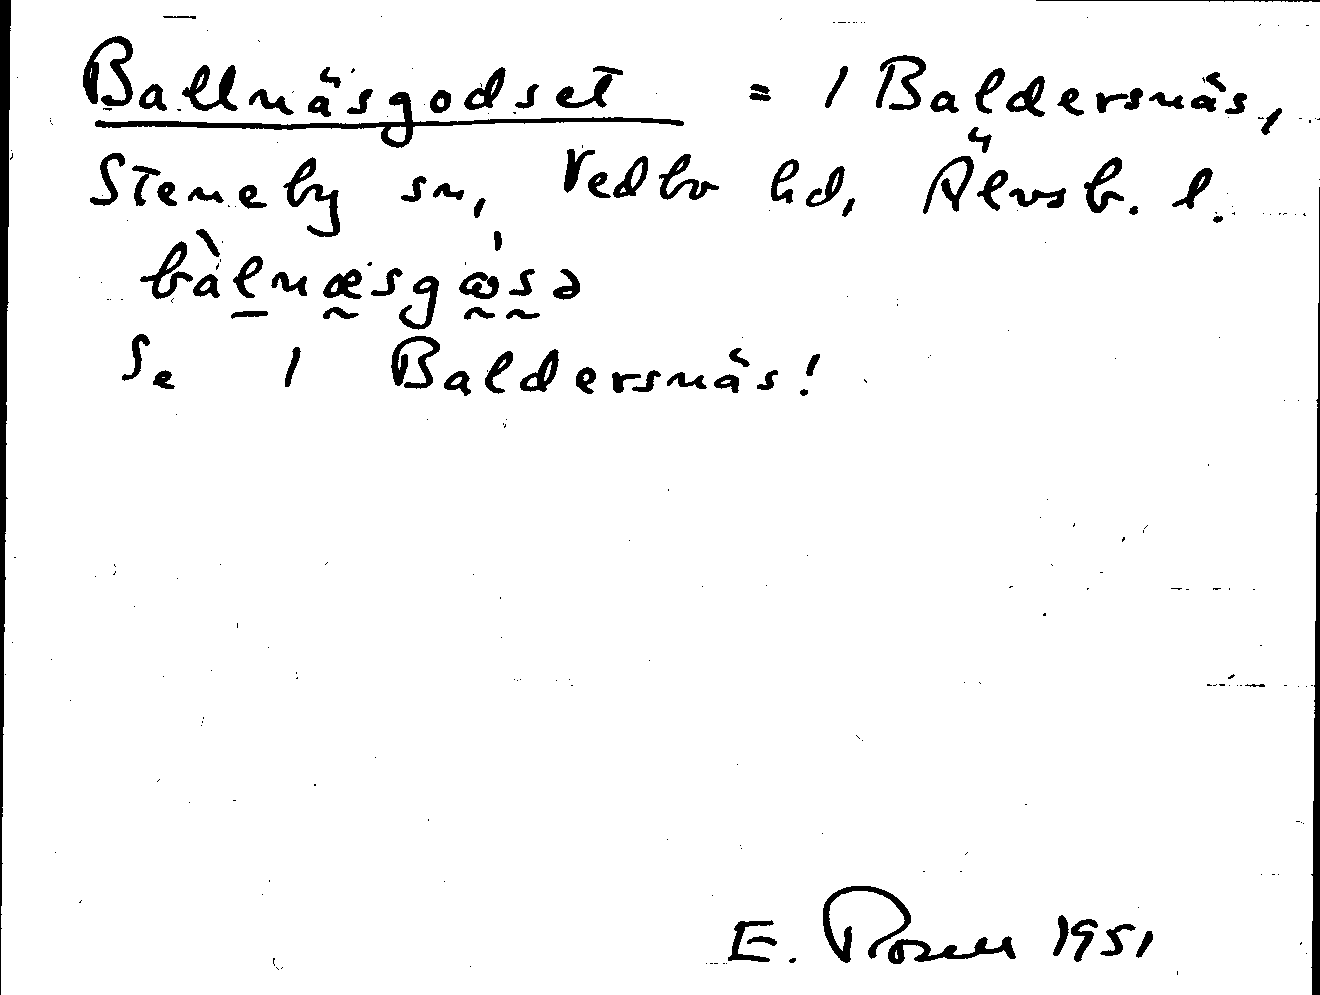 Ballnäsgodset = 1 Baldersnäs,
Steneby sn, Vedbo hd, Älvsb. l.
bàlnæsgɷ̀sə
Se 1 Baldersnäs!
E. Rosell 1951